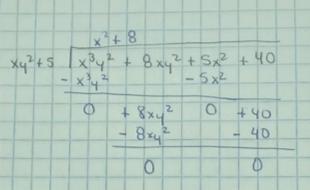 x²+8
xy²+5 x³y² + 8xy² + 5x² + 40
- x³y² - 5x²
0 + 8xy² 0 + 40
- 8xy² - 40
0 0